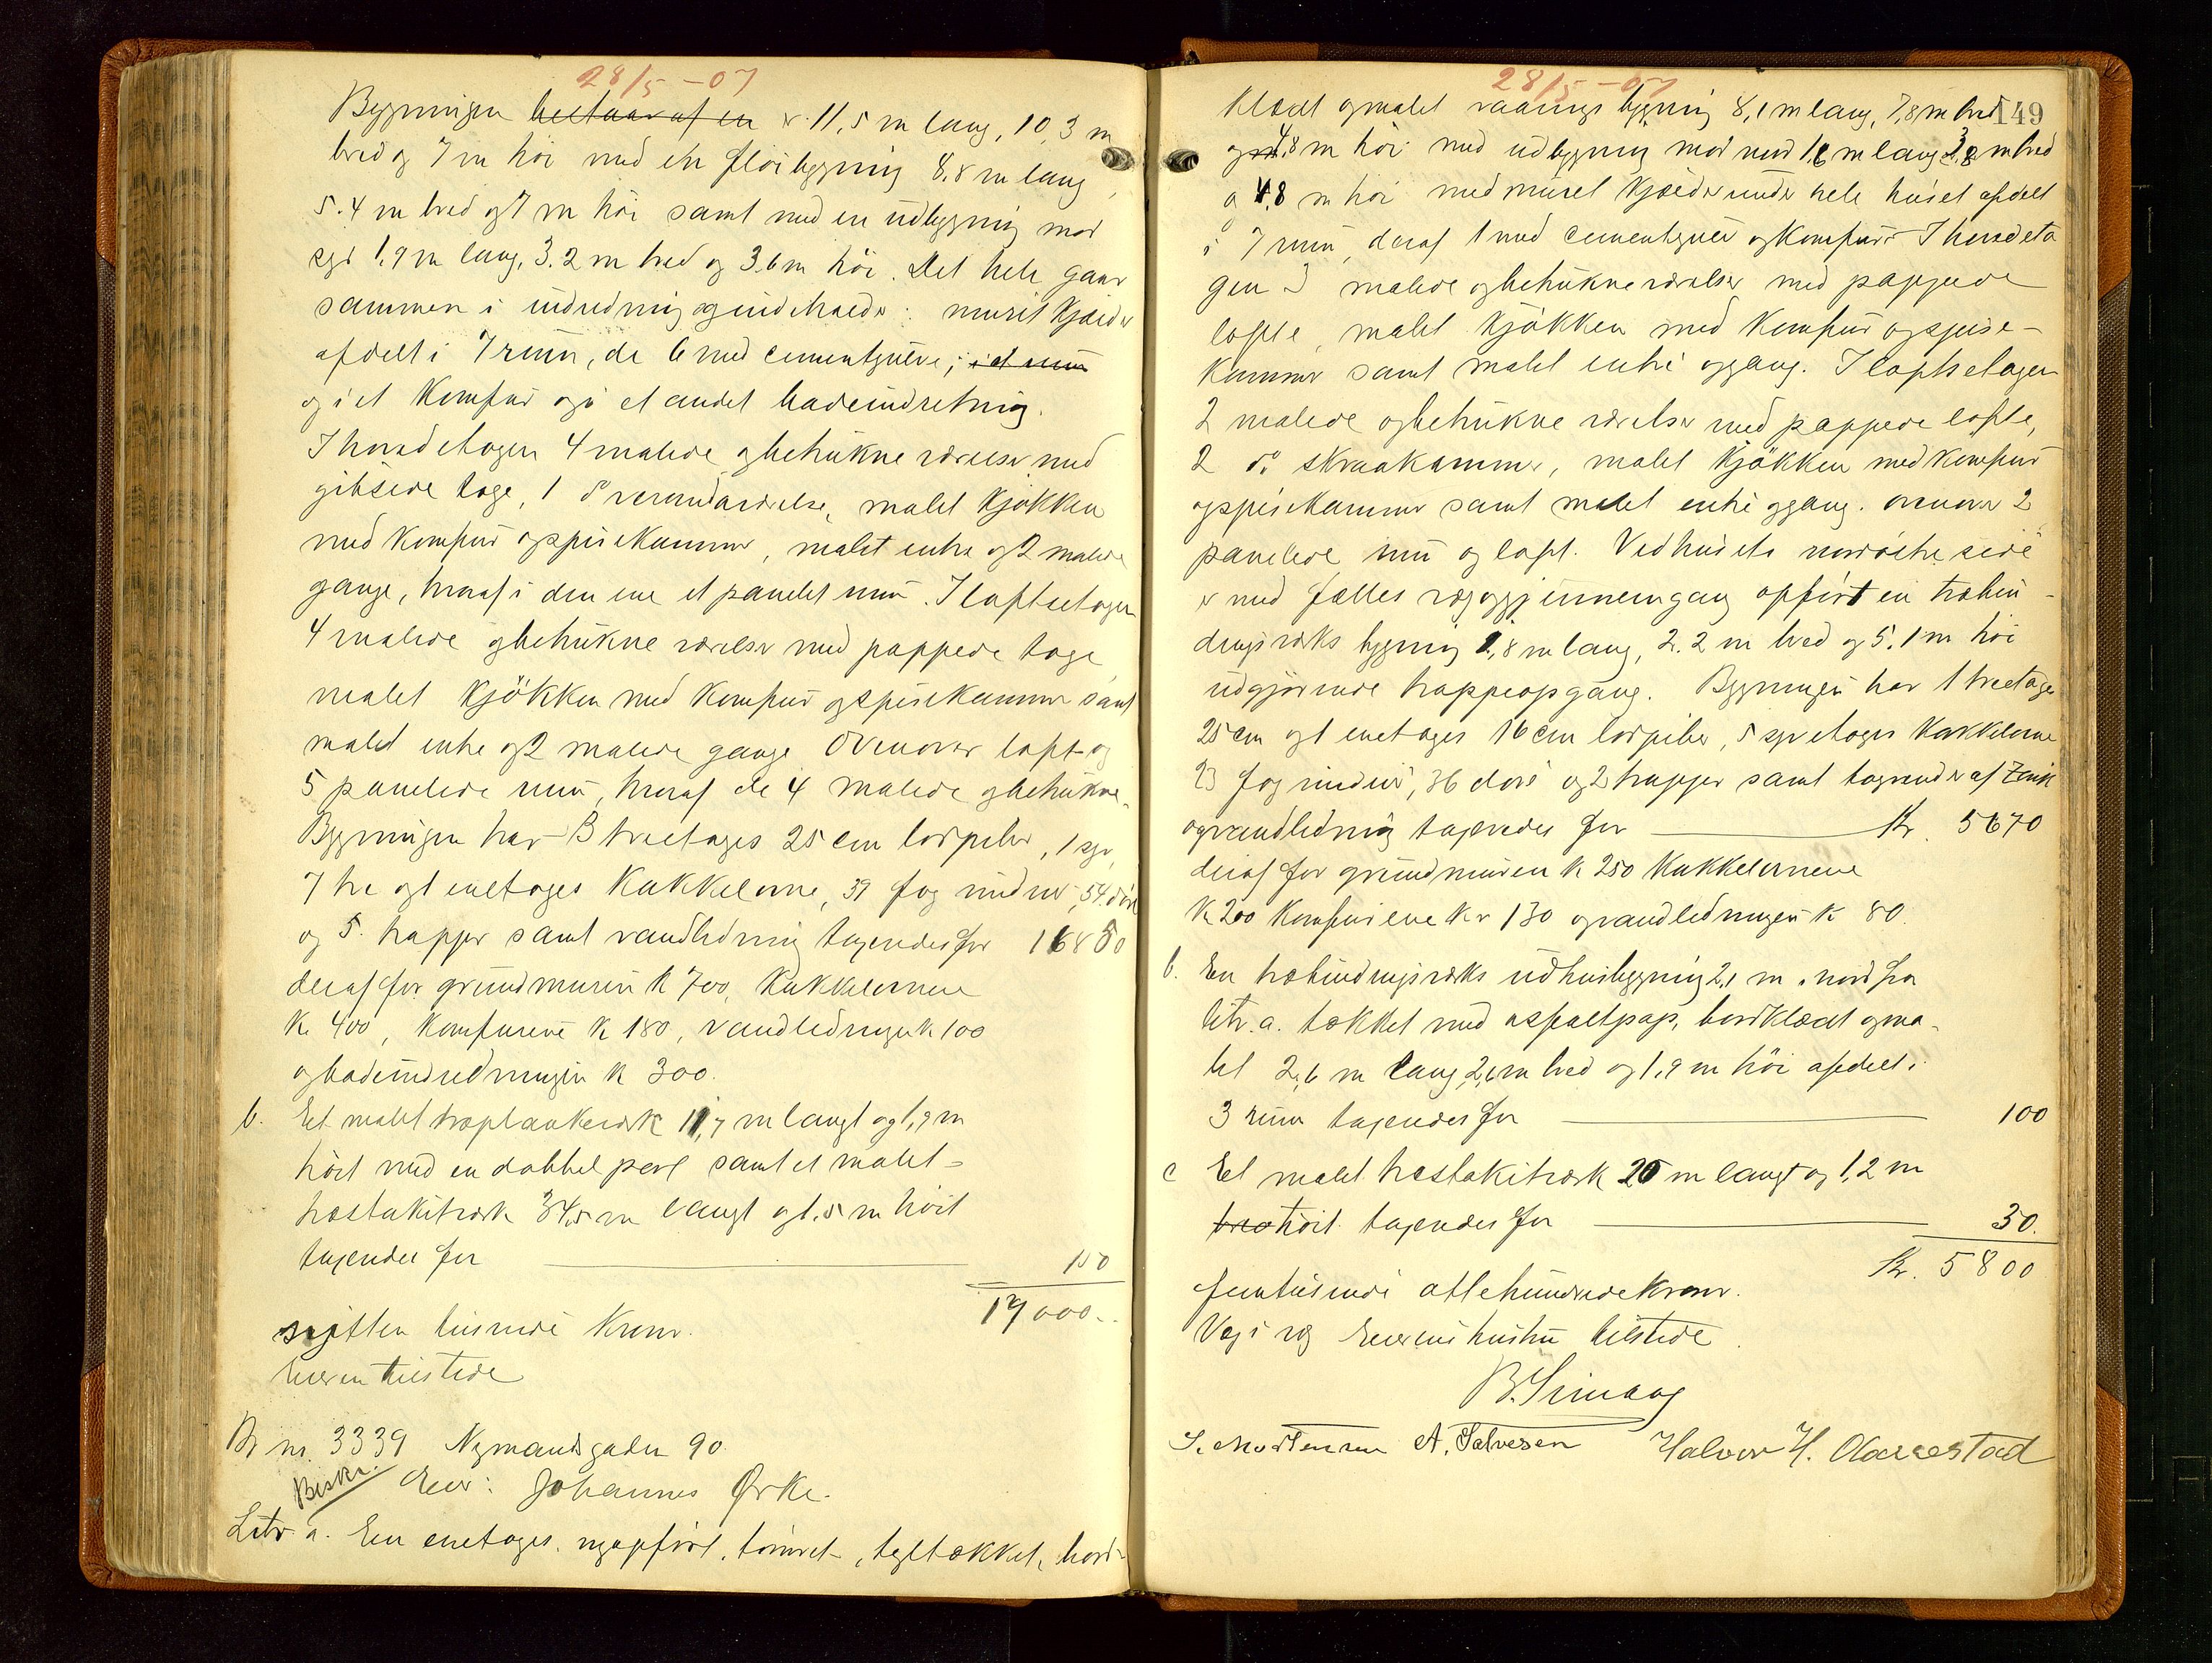 28/5 - 07
Bygningen bestaar af en er 11,5 m lang, 10,3 m
bred og 7 m höi med en flöibygning 8,8 m lang,
5.4 m bred og 7 m höi samt med en udbygning mod
syd 1,9 m lang, 3.2 m bred og 3.6 m höi. Det hele gaar
sammen i indredning og indeholder: muret kjælder
afdelt i 7 rum, de 6 med cementgulve, i et rum
og i et komfur og i et andet badeindretning.
I hovedetagen 4 malede og betrukne værelser med
gibsede tage, 1 do verandaværelse, malet kjökken
med komfur og spisekammer, malet entre og 2 malede
gange, hvoraf i den ene et panelet rum. I loftsetagen
4 malede og betrukne værelser med pappede tage
malet kjökken med komfur og spisekammer samt
malet entre og 2 malede gange Ovenover loft og
5 panelede rum, hvoraf de 4 malede og betrukne.
Bygningen har 3 treetages 25 cm lodpiber, 1 sjv,
7 tre og 1 enetages kakkelovne, 39 fag vinduer, 54 döre
og 5 trapper samt vandledning taxeredes for 16850
deraf for grundmuren kr 700, kakkelovnene
kr 400, komfurene kr 180, vandledningen kr 100
og badeindredningen kr 300.
b. Et malet træplankeværk 11,7 m langt og 1,9 m
höit med en dobbel port samt et malet
træstakitværk 34,5 m langt og 1,5 m höit
taxeredes for 150
17000..
sytten tusinde Kroner.
Eieren tilstede
Br nr. 3339 Nymandsgaden 90
Beskr. Eier: Johannes Ørke.
Litr a. En enetages, nyopfört, tömret, tegltækket, bord-
28/5 - 07
149
klædt og malet vaanings bygning 8,1 m lang, 7,8 m bred
og 4,8 m höi med udbygning mod nord 1,6 m lang 3,8 m bred
og 4,8 m höi med muret kjælder under hele huset afdelt
i 7 rum, deraf 1 med cementgulv og komfur. I hovedeta
gen 3 malede og betrukne værelser med pappede
lofte, malet kjökken med komfur og spise-
kammer samt malet entre og gang. I loftsetagen
2 malede og betrukne værelser med pappede lofte,
2 do skraakammer, malet kjökken med komfur
og spisekammer samt malet entre og gang. ovenover 2
panelede rum og loft. Ved husets nordöstre side
er med fælles væg og gjennemgang opfört en træbin-
dingsværks bygning 2,8 m lang, 2.2 m bred og 5.1 m höi
udgjörende trappeopgang. Bygningen har 1 treetages
25 cm og 1 enetages 16 cm lodpiber, 5 sjv etages kakkelovne
23 fag vinduer, 36 döre og 2 trapper samt tagrender af zink
og vandledning taxeredes for Kr. 5670
deraf for grundmuren kr 250 kakkelovnene
kr 200 komfurene kr 130 og vandledningen kr 80.
b. En træbindingsværks udhusbygning 2,1 m. nord fra
litr. a. tækket med asfaltpap, bordklædt og ma-
let 2,6 m lang 2,1 m bred og 1,9 m höi afdelt i
3 rum taxeredes for 100
c Et malet træstakitværk 20 m langt og 1,2 m
höit taxeredes for 30.
Kr. 5800
femtusinde ottehundrede Kroner.
Veg i væg Eierens hustru tilstede.
B. Simang
S. Mortensen A. Salvesen Halvor H. Aarrestad